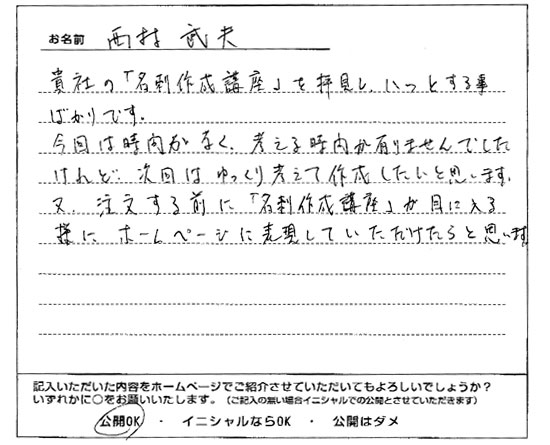 お名前 西村 武夫
貴社の「名刺作成講座」を拝見し、ハッとする事
ばかりです。
今回は時間がなく、考える時間が有りませんでした
けれど、次回はゆっくり考えて作成したいと思います。
又、注文する前に「名刺作成講座」が目に入る
様にホームページに表現していただけたらと思います
記入いただいた内容をホームページでご紹介させていただいてもよろしいでしょうか?
いずれかに○をお願いいたします。（ご記入の無い場合イニシャルでの公開とさせていただきます）
公開OK ・ イニシャルならOK ・ 公開はダメ